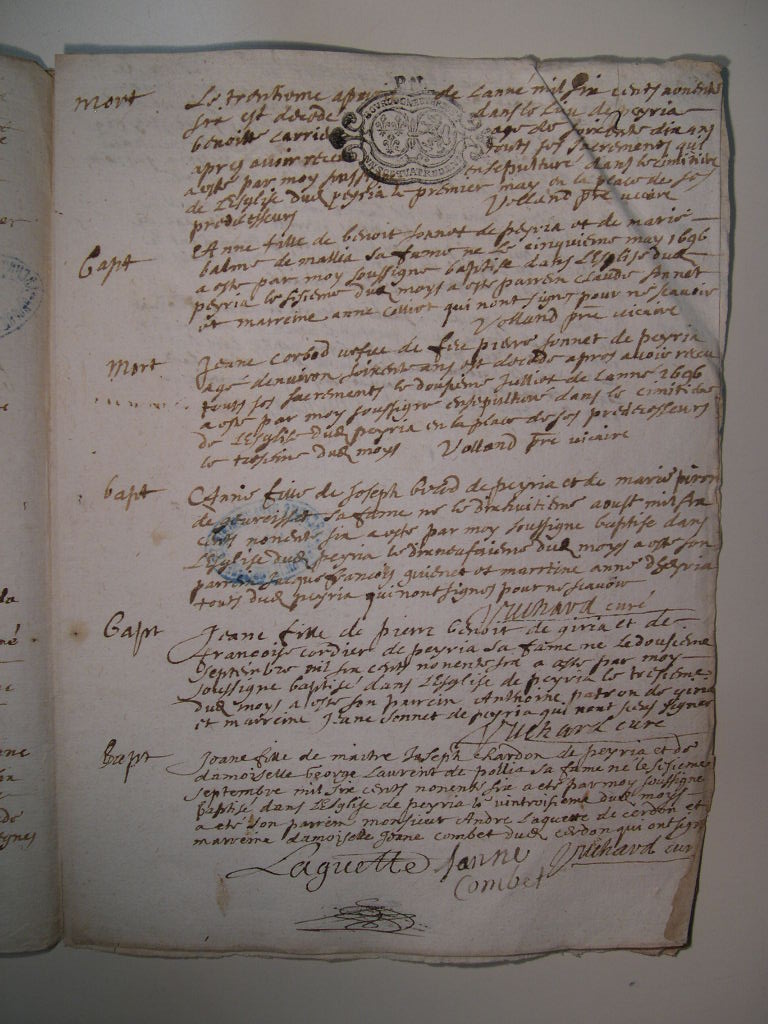 mort
Le trentieme de Lanné mil six cents nonente
six est décédé dans le lieu de peyria
benoitte age de soixante dix ans
apres avoir receu touts ses sacrements qui
a esté par moy ensepulturé dans le cimitière
de L'Esglise dud peyria le premier may en la place de ses
predecesseurs Volland pre vicaire
Bapt
Anne fille de benoit Sonnet de peyria et de marie
balme de mallia sa fame ne le cinquieme may 1696
a esté par moy soussigné baptisé dans L'Esglise dud
peyria le sisieme dud moys a esté parrein claude Sonnet
et marreine anne colliot qui nont signé pour ne scavoir
Volland pre vicaire
Mort
Jeane Corbod vefve de feu pierre Sonnet de peyria
agé denviron soixente ans est décédé apres avoir receu
touts ses sacrements le dousieme Julliet de Lanné 1696
a esté par moy soussigné ensepulturé dans le cimitière
de L'Esglise dud peyria en la place de ses predecesseurs
le tresieme dud moys Volland pre vicaire
bapt
Anne fille de Joseph de peyria et de marie piron
de sa fame ne le dixhuitième aoust mil six
cents nonente six a esté par moy soussigné baptisé dans
L'Esglise dud peyria le dixneufvieme dud moys a esté son
parrein Jacque françois guienet et marreine anne
touts dud peyria qui nont signés pour ne scavoir
Vuichard curé
Bapt
Jeane fille de pierre benoit de giria et de
françoise cordier de peyria sa fame ne le dousieme
septembre mil six cents nonente six a esté par moy
soussigné baptisé dans L'Esglise de peyria le tresieme
dud moys a esté son parrein Anthoine patron de giria
et marreine Jeane Sonnet de peyria qui nont sceus signer
Vuichard curé
Bapt
Jeane fille de maitre Joseph chardon de peyria et de
damoiselle george Laurent de pollia sa fame ne le sisieme
septembre mil six cents nonente six a eté par moy soussigné
baptisé dans L'Esglise de peyria le vintroisieme dud moys
a eté son parrein monsieur André Laguette de cerdon et
marreine damoiselle Jeane Combet dud cerdon qui ont signé
Laguette Janne Vuichard curé
Combet